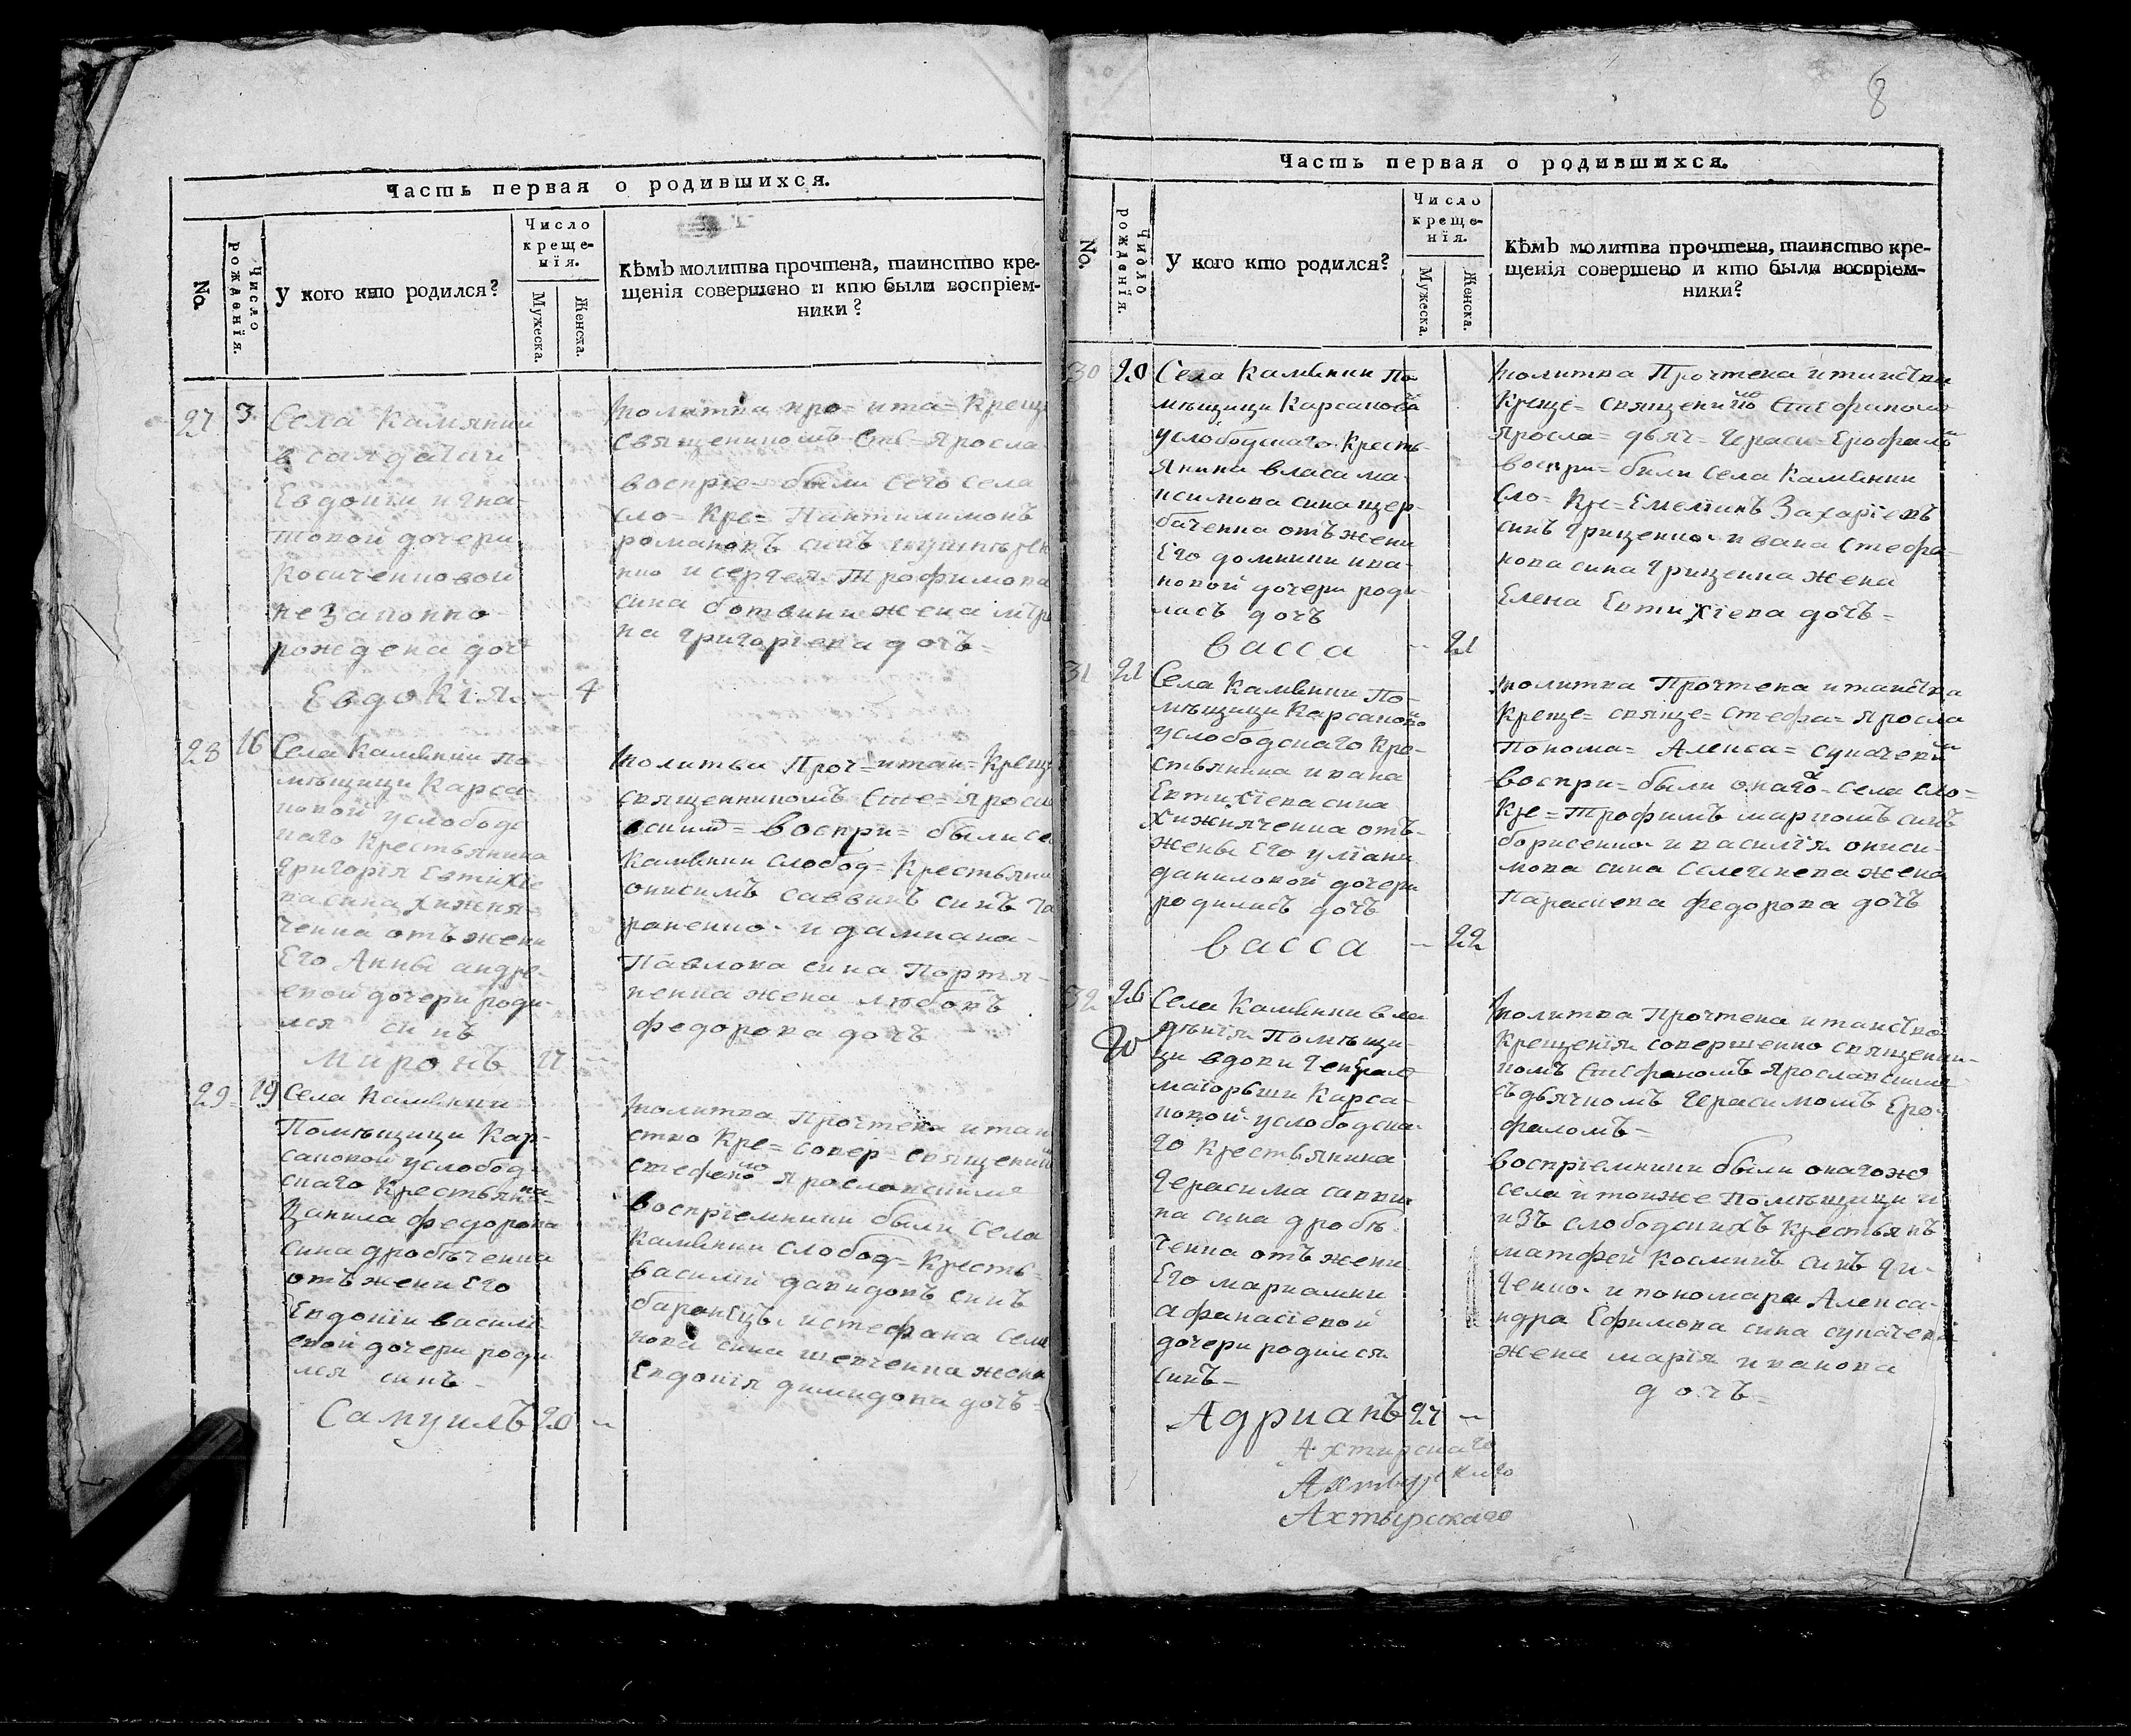 Часть первая о родившихся.
No.
Число рожденїя.
У кого кто родился?
Число крещенїя.
Мужеска.
Женска.
Кѣмъ молитва прочтена, таинство кре-
щенія совершено и кто были воспріем-
ники?
27 3
Села Камянки
Евдокїи игна-
товой дочери
Косиченковой
незаконно
рождена доч
Евдокїя 4
молитва про= ита= Крещ
священикомъ Сте= яросла
воспріе= были сего села
сло= Кре= Пантилимонъ
романовъ синъ
нко и сергея Трофимова
сина ботвини жена
на григорїева дочъ=
28 16
Села Камѣнки по-
мѣщици Карса-
новой услободс
каго Крестьянина
григорїя Евтихїе
ва сина хижня-
ченка отъ жени
Его Анны андре-
евой дочери роди-
лся синъ
миронъ 17
молитви Проч= итаи= Крещ
священникомъ Сте= яросл
воспри= были се
Камѣнки слобод= Крестьяни
онисимъ саввинъ синъ га
раненко и дамиана
Павлова сина Портя-
ненка жена любовъ
федорова дочъ
29 19
Села Камѣнки
Помѣщици Кар-
сановой услобод-
скаго Крестьянина
Данила федорова
сина дробѣченка
отъ жени Его
Евдокїи василї-
евой дочери роди-
лся синъ
Самуилъ 20
молитва Прочтена итаи
ство Кре= совер= священик
стефано ярославскимъ
воспрїемники были Села
Камѣнки слобод= Кресть=
василїй давидовъ синъ
баранецъ истефана семе
нова сина шевченка жена
Евдокїя димидова дочъ=
8
Часть первая о родившихся.
No.
Число рожденїя.
У кого кто родился?
Число крещенїя.
Мужеска.
Женска.
Кѣмъ молитва прочтена, таинство кре-
щенія совершено и кто были воспріем-
ники?
30 20
Села Камѣнки По-
мѣщици Карсановой
услободскаго Кресть-
янина власа ма-
ксимова сина щер-
баченка отъ жени
Его домники ива-
новой дочери роди-
ласъ дочъ
васса 21
молитва Прочтена итаиства
Креще= священико Стефаномъ
Яросла= дьяч= Гераси= Ерофало
воспри= били села Камѣнки
Сло= Кре= Емелїанъ Захарїевъ
синъ гриценко и вана Стефа-
нова сина гриценка жена
Елена Евтихїева дочъ=
31 21
Села Камѣнки По-
мѣщици Карсановой
услободскаго Кре-
стьянина ивана
Евтихїева сина
хижняченка отъ
жены Его улїани
даниловой дочери
родилась дочъ
васса 22
молитва Прочтена итаиства
Креще= свяще= Стефа= Яросла
Понома= Алекса=
воспри= были онаго села сло=
Кре= Трофимъ марковъ синъ
борисенко и василїя ониси-
мова сина жена
Параскева федорова дочъ
32 26
Села Камѣнки вла
дѣнїя Помѣщи-
ци вдови Генерал
маїорьши Карса-
новой услободска-
го Крестьянина
герасима савви-
на сина дробѣ-
ченка отъ жени
Его мариамни
афанасїевой
дочери родился
синъ
Адрианъ 27
молитва Прочтена итаиство
Крещенїя совершенно священни-
комъ Стефаномъ Ярославскимъ
съдьячкомъ Герасимомъ Еро-
фаломъ=
воспрїемники были онагоже
села итоиже Помѣщици и
изъ слободскихъ Крестьянъ
матфей Косминъ синъ ди-
денко и пономара Алекса-
ндра Ефимова сина
жена марїя иванова
дочъ=
Ахтирскаго
Ахтырскаго
Ахтырскаго